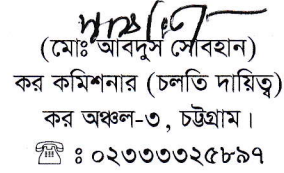 (মোঃ আবদুস সোবহান)
কর কমিশনার (চলতি দায়িত্ব)
কর অঞ্চল-৩, চট্টগ্রাম।
☎ : ০২৩৩৩৩২৫৮৯৭